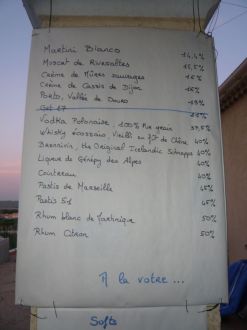 Martini Bianco 14,4%
Muscat de Rivesaltes 15,5%
Crème de Mûres sauvages 16%
Crème de Cassis de Dijon 16%
Porto, Vallée de Douro 19%
Get 27
Vodka Polonaise, 100% Pur grain 37,5%
Whisky écossais Vieilli en fût de Chêne 40%
Brennivin, the Original Icelandic Schnapps 40%
Liqueur de Génépy des Alpes 40%
Cointreau 40%
Pastis de Marseille 45%
Pastis 51 45%
Rhum blanc de Martinique 50%
Rhum Citron 50%
A la votre ...
Softs